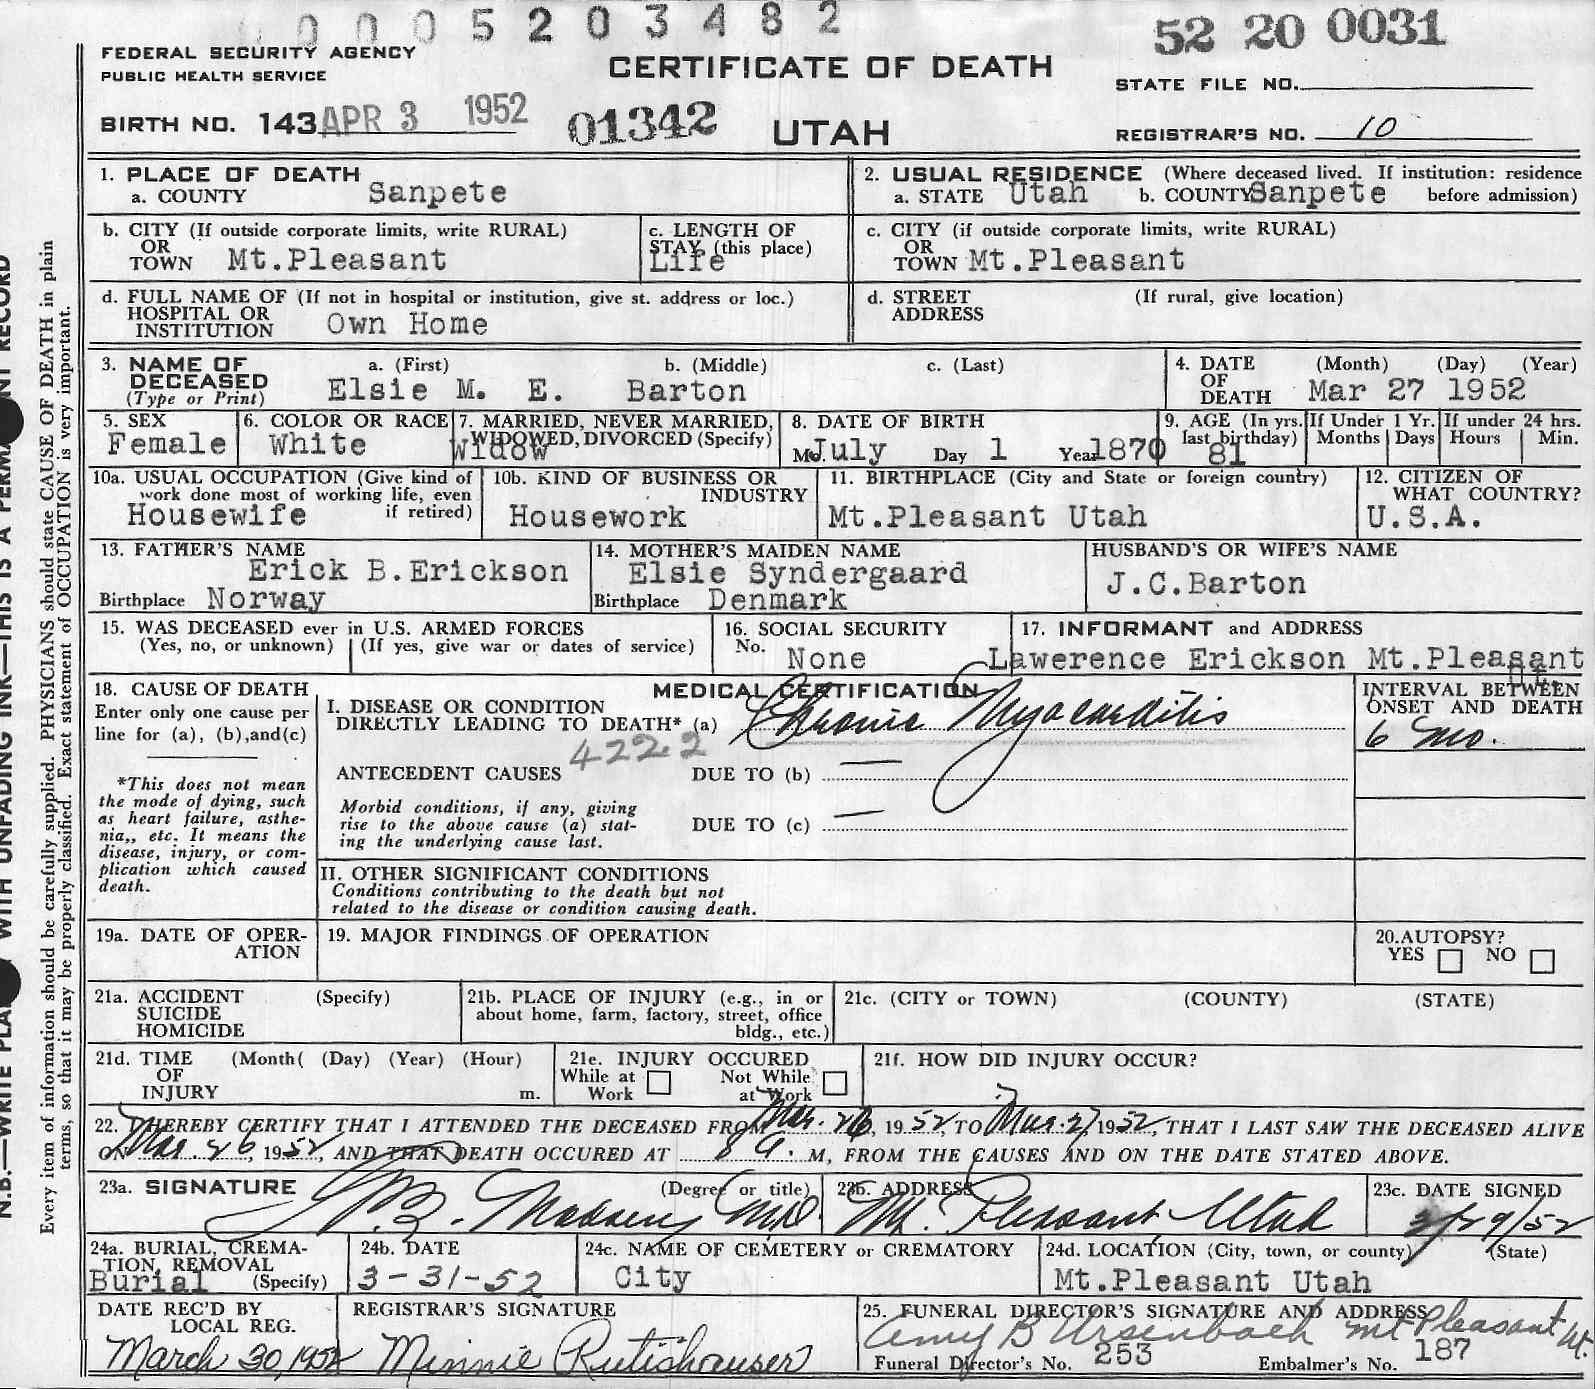 0005203482
52 20 0031
FEDERAL SECURITY AGENCY
PUBLIC HEALTH SERVICE
CERTIFICATE OF DEATH
STATE FILE NO.
BIRTH NO. 143 APR 3 1952
01342
UTAH
REGISTRAR'S NO. 10
1. PLACE OF DEATH
a. COUNTY Sanpete
2. USUAL RESIDENCE (Where deceased lived. If institution: residence before admission)
a. STATE Utah b. COUNTY Sanpete
b. CITY (If outside corporate limits, write RURAL)
OR
TOWN Mt.Pleasant
c. LENGTH OF
STAY (this place)
Life
c. CITY (if outside corporate limits, write RURAL)
OR
TOWN Mt.Pleasant
d. FULL NAME OF (If not in hospital or institution, give st. address or loc.)
HOSPITAL OR
INSTITUTION Own Home
d. STREET (If rural, give location)
ADDRESS
3. NAME OF a. (First) b. (Middle) c. (Last)
DECEASED
(Type or Print) Elsie M. E. Barton
4. DATE (Month) (Day) (Year)
OF
DEATH Mar 27 1952
5. SEX
Female
6. COLOR OR RACE
White
7. MARRIED, NEVER MARRIED,
WIDOWED, DIVORCED (Specify)
Widow
8. DATE OF BIRTH
Mo July Day 1 Year 1870
9. AGE (In yrs. last birthday)
81
If Under 1 Yr.
Months Days
If under 24 hrs.
Hours Min.
10a. USUAL OCCUPATION (Give kind of
work done most of working life, even
if retired)
Housewife
10b. KIND OF BUSINESS OR
INDUSTRY
Housework
11. BIRTHPLACE (City and State or foreign country)
Mt.Pleasant Utah
12. CITIZEN OF
WHAT COUNTRY?
U.S.A.
13. FATHER'S NAME
Erick B.Erickson
Birthplace Norway
14. MOTHER'S MAIDEN NAME
Elsie Syndergaard
Birthplace Denmark
HUSBAND'S OR WIFE'S NAME
J.C.Barton
15. WAS DECEASED ever in U.S. ARMED FORCES
(Yes, no, or unknown) (If yes, give war or dates of service)
16. SOCIAL SECURITY
No. None
17. INFORMANT and ADDRESS
Lawerence Erickson Mt.Pleasant
Ut.
18. CAUSE OF DEATH
Enter only one cause per
line for (a), (b), and (c)
*This does not mean
the mode of dying, such
as heart failure, asthe-
nia,, etc. It means the
disease, injury, or com-
plication which caused
death.
MEDICAL CERTIFICATION
I. DISEASE OR CONDITION
DIRECTLY LEADING TO DEATH* (a) Chronic Myocarditis
4222
ANTECEDENT CAUSES DUE TO (b) —
Morbid conditions, if any, giving
rise to the above cause (a) stat-
ing the underlying cause last.
DUE TO (c) —
INTERVAL BETWEEN
ONSET AND DEATH
6 mo.
II. OTHER SIGNIFICANT CONDITIONS
Conditions contributing to the death but not
related to the disease or condition causing death.
19a. DATE OF OPER-
ATION
19. MAJOR FINDINGS OF OPERATION
20. AUTOPSY?
YES NO
21a. ACCIDENT (Specify)
SUICIDE
HOMICIDE
21b. PLACE OF INJURY (e.g., in or
about home, farm, factory, street, office
bldg., etc.)
21c. (CITY or TOWN) (COUNTY) (STATE)
21d. TIME (Month( (Day) (Year) (Hour)
OF
INJURY m.
21e. INJURY OCCURED
While at Work Not While at Work
21f. HOW DID INJURY OCCUR?
22. I HEREBY CERTIFY THAT I ATTENDED THE DECEASED FROM Mar. 26, 1952, TO Mar. 27 1952, THAT I LAST SAW THE DECEASED ALIVE
ON Mar. 26, 1952, AND THAT DEATH OCCURED AT 8 A. M, FROM THE CAUSES AND ON THE DATE STATED ABOVE.
23a. SIGNATURE (Degree or title)
Madsen M.D.
23b. ADDRESS
Mt. Pleasant Utah
23c. DATE SIGNED
3/29/52
24a. BURIAL, CREMA-
TION, REMOVAL
(Specify)
Burial
24b. DATE
3-31-52
24c. NAME OF CEMETERY or CREMATORY
City
24d. LOCATION (City, town, or county) (State)
Mt.Pleasant Utah
DATE REC'D BY
LOCAL REG.
March 30, 1952
REGISTRAR'S SIGNATURE
Minnie Rutishauser
25. FUNERAL DIRECTOR'S SIGNATURE AND ADDRESS
B Ursenbach Mt Pleasant Ut.
Funeral Director's No. 253 Embalmer's No. 187
Every item of information should be carefully supplied. PHYSICIANS should state CAUSE OF DEATH in plain
terms, so that it may be properly classified. Exact statement of OCCUPATION is very important.
N.B.—WRITE WITH UNFADING INK—THIS IS A RECORD